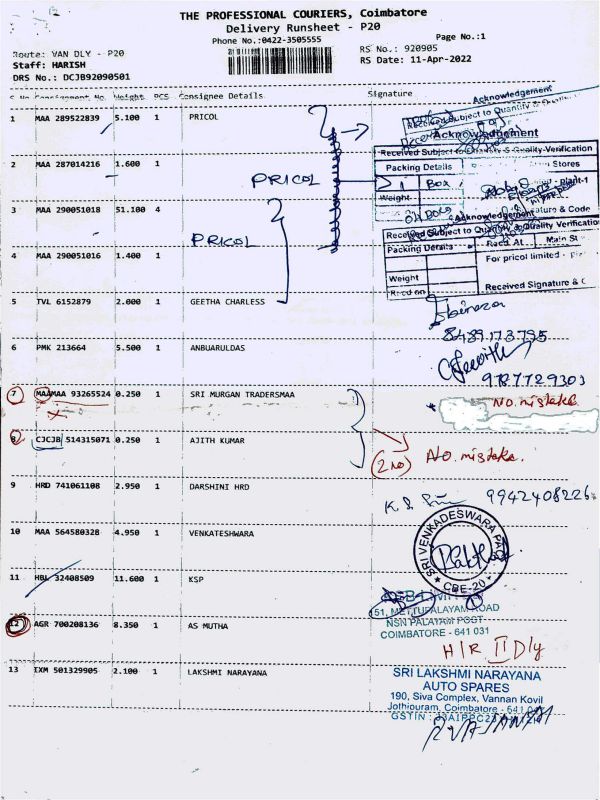 THE PROFESSIONAL COURIERS, Coimbatore
Delivery Runsheet - P20
Phone No.:0422-3505555
Page No.:1
Route: VAN DLY - P20
RS No.: 920905
Staff: HARISH
RS Date: 11-Apr-2022
DRS No.: DCJB92090501
S No Consignment No. Weight PCS Consignee Details Signature
1 MAA 289522839 5.100 1 PRICOL
Acknowledgement
Received Subject to Quantity & Quality
Acknowledgement
Received Subject to Quantity & Quality-Verification
Packing Details Stores
2 MAA 287014216 1.600 1
PRICOL
1 Box
Plant-1
Weight
3 MAA 290051018 51.100 4
Signature & Code
Acknowledgement
Received Subject to Quantity & Quality Verification
PRICOL
Packing Details Recd. At Main St
4 MAA 290051016 1.400 1
For pricol limited - Pla
Weight
Recd on Received Signature & C
5 TVL 6152879 2.000 1 GEETHA CHARLESS
8489173795
6 PMK 213664 5.500 1 ANBUARULDAS
9787729303
7 MAAMAA 93265524 0.250 1 SRI MURGAN TRADERSMAA
NO. mistake
8 CJCJB 514315071 0.250 1 AJITH KUMAR
(2 NO) NO. mistake.
9 HRD 741061108 2.950 1 DARSHINI HRD
9942408226
10 MAA 564580328 4.950 1 VENKATESHWARA
SRI VENKADESWARA PACK
CBE-20
11 HBL 32408509 11.600 1 KSP
51, METTUPALAYAM ROAD
NSN PALAYAM POST
COIMBATORE - 641 031
12 AGR 700208136 8.350 1 AS MUTHA
H/R II Dly
13 IXM 501329905 2.100 1 LAKSHMI NARAYANA
SRI LAKSHMI NARAYANA
AUTO SPARES
190, Siva Complex, Vannan Kovil
Jothiouram, Coimbatore - 641 047
GSTIN :